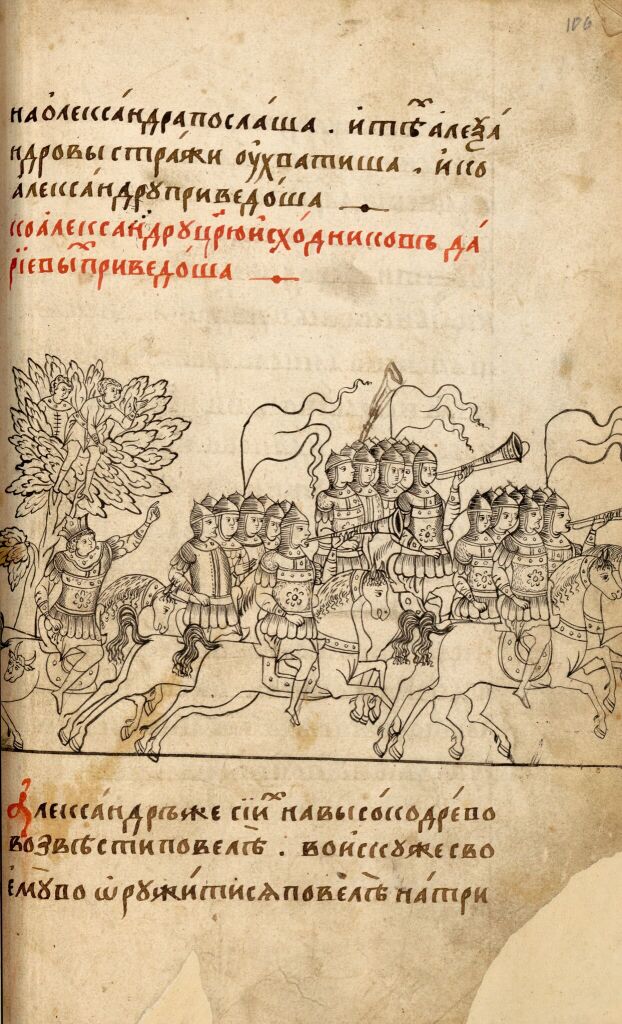 106
на олеѯа́ндра посла́ша . и҆ тѣ́х алеѯа́
ндровы стра́жи оухватиша . и҆ ко
а҆леѯа́ндру приведо́ша
ко а҆леѯа́ндру цр҃ю и҆схо́дниковъ да́
рїевы́х приведо́ша
а҆леѯа́ндръ же сїи́х на высо́ко дре́во
возвѣсти повелѣ̀ . воиску же сво
ему̀ во ѡ҆ружи́тисѧ повелѣ̀ на́ три